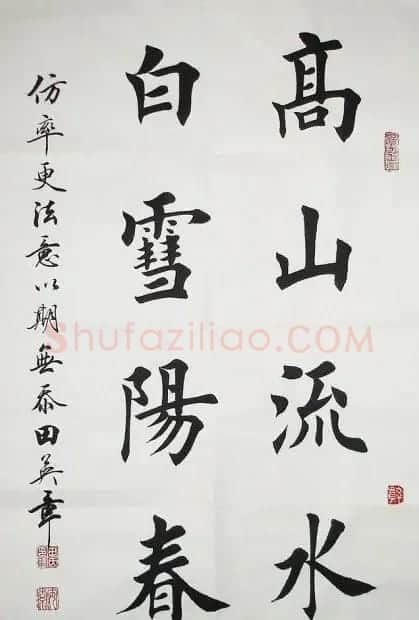 髙山流水
白雪陽春
仿率更法意以期無忝田英章
Shufaziliao.COM